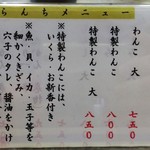 らんちメニュー
わんこ 大 七五〇
特製わんこ 八〇〇
特製わんこ 大 八五〇
※特製わんこには、
いくら・お新香付き
※魚、貝、イカ、玉子等を
細かくきざみ、
穴子のタレ、醤油をかけ